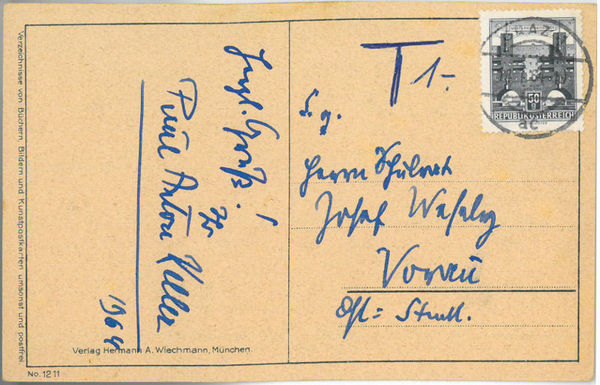 Verzeichnisse von Büchern, Bildern und Kunstpostkarten umsonst und postfrei
Herzl. Gruß!
Ihr
Paul Anton Keller
1964
Verlag Hermann A. Wiechmann, München
No. 1211
T 1.-
GRAZ
50
REPUBLIK ÖSTERREICH
S. g.
Herrn Schulrat
Josef Wesely
Vorau
Ost = Stmk.